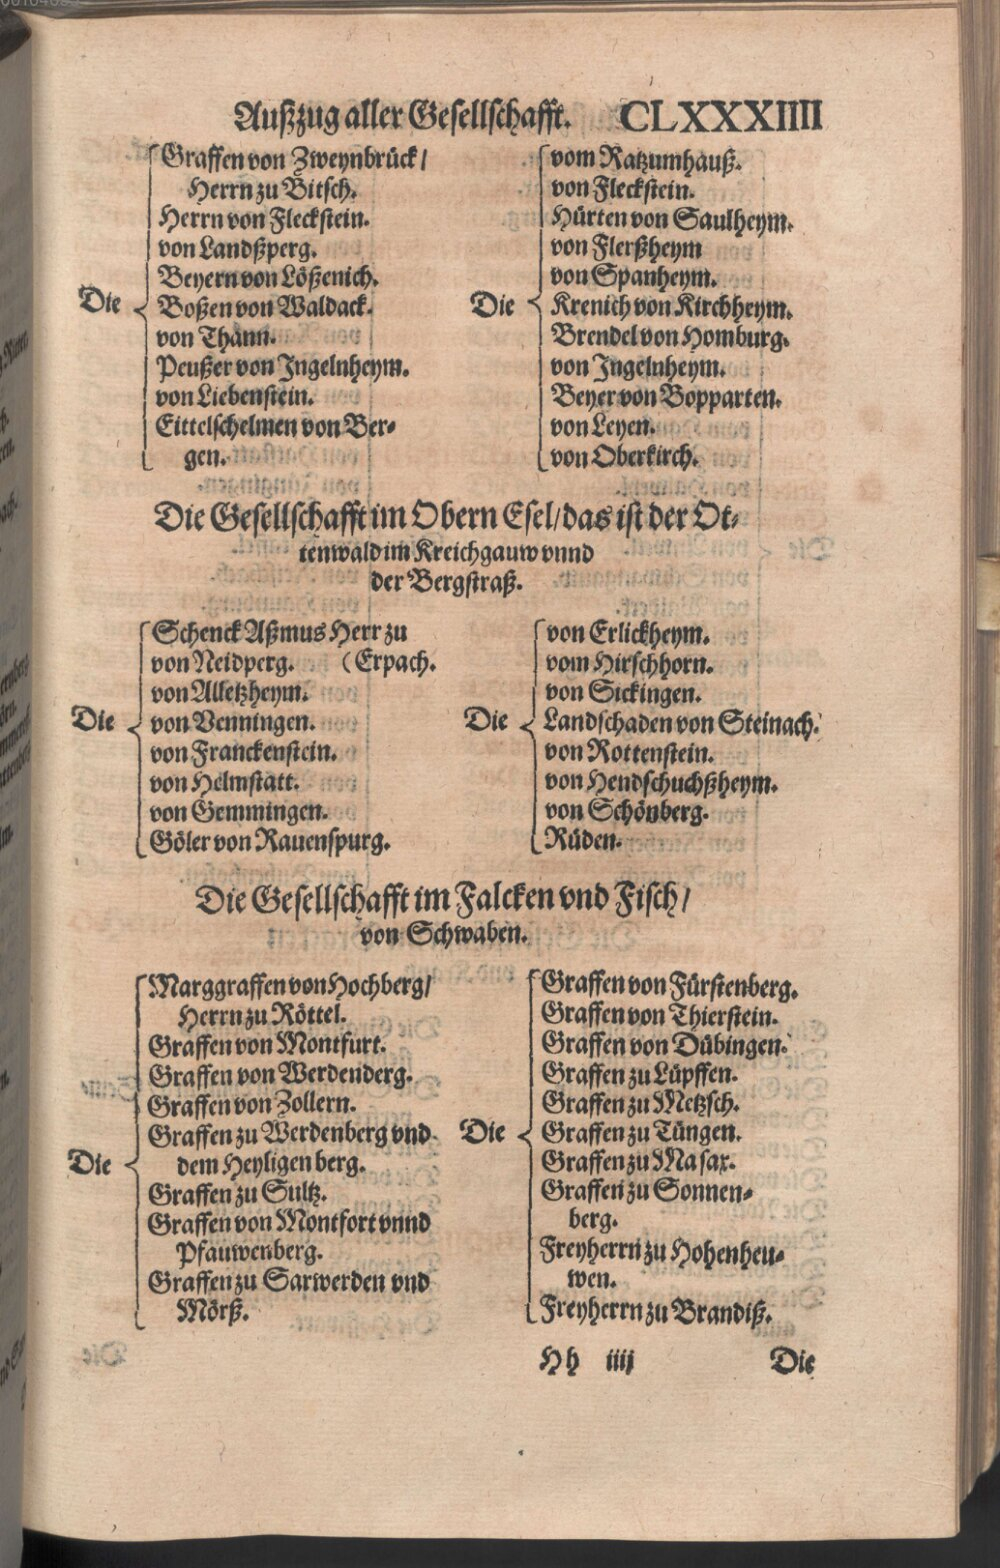 Außzug aller Gesellschafft. CLXXXIIII
Graffen von Zweynbrück /
Herrn zu Bitsch.
Herrn von Fleckstein.
von Landßperg.
Beyern von Lößenich.
Die
Boßen von Waldack.
von Thann.
Peußer von Jngelnheym.
von Liebenstein.
Eittelschelmen von Ber-
gen.
vom Ratzumhauß.
von Fleckstein.
Hürten von Saulheym.
von Flerßheym
von Spanheym.
Die
Krenich von Kirchheym.
Brendel von Homburg.
von Jngelnheym.
Beyer von Bopparten.
von Leyen.
von Oberkirch.
Die Gesellschafft im Obern Esel / das ist der Ot-
tenwald im Kreichgauw vnnd
der Bergstraß.
Schenck Aßmus Herr zu
von Neidperg. (Erpach.
von Alletzheym.
Die
von Venningen.
von Franckenstein.
von Helmstatt.
von Gemmingen.
Göler von Rauenspurg.
von Erlickheym.
vom Hirschhorn.
von Sickingen.
Die
Landschaden von Steinach.
von Rottenstein.
von Hendschuchßheym.
von Schönberg.
Rüden.
Die Gesellschafft im Falcken vnd Fisch /
von Schwaben.
Marggraffen von Hochberg /
Herrn zu Röttel.
Graffen von Montfurt.
Graffen von Werdenderg.
Graffen von Zollern.
Graffen zu Werdenberg vnd
Die
dem Heyligen berg.
Graffen zu Sultz.
Graffen von Montfort vnnd
Pfauwenberg.
Graffen zu Sarwerden vnd
Mörß.
Graffen von Fürstenberg.
Graffen von Thierstein.
Graffen von Dübingen.
Graffen zu Lüpffen.
Graffen zu Metzsch.
Die
Graffen zu Tüngen.
Graffen zu Masax.
Graffen zu Sonnen-
berg.
Freyherrn zu Hohenheu-
wen.
Freyherrn zu Brandiß.
Hh iiij Die